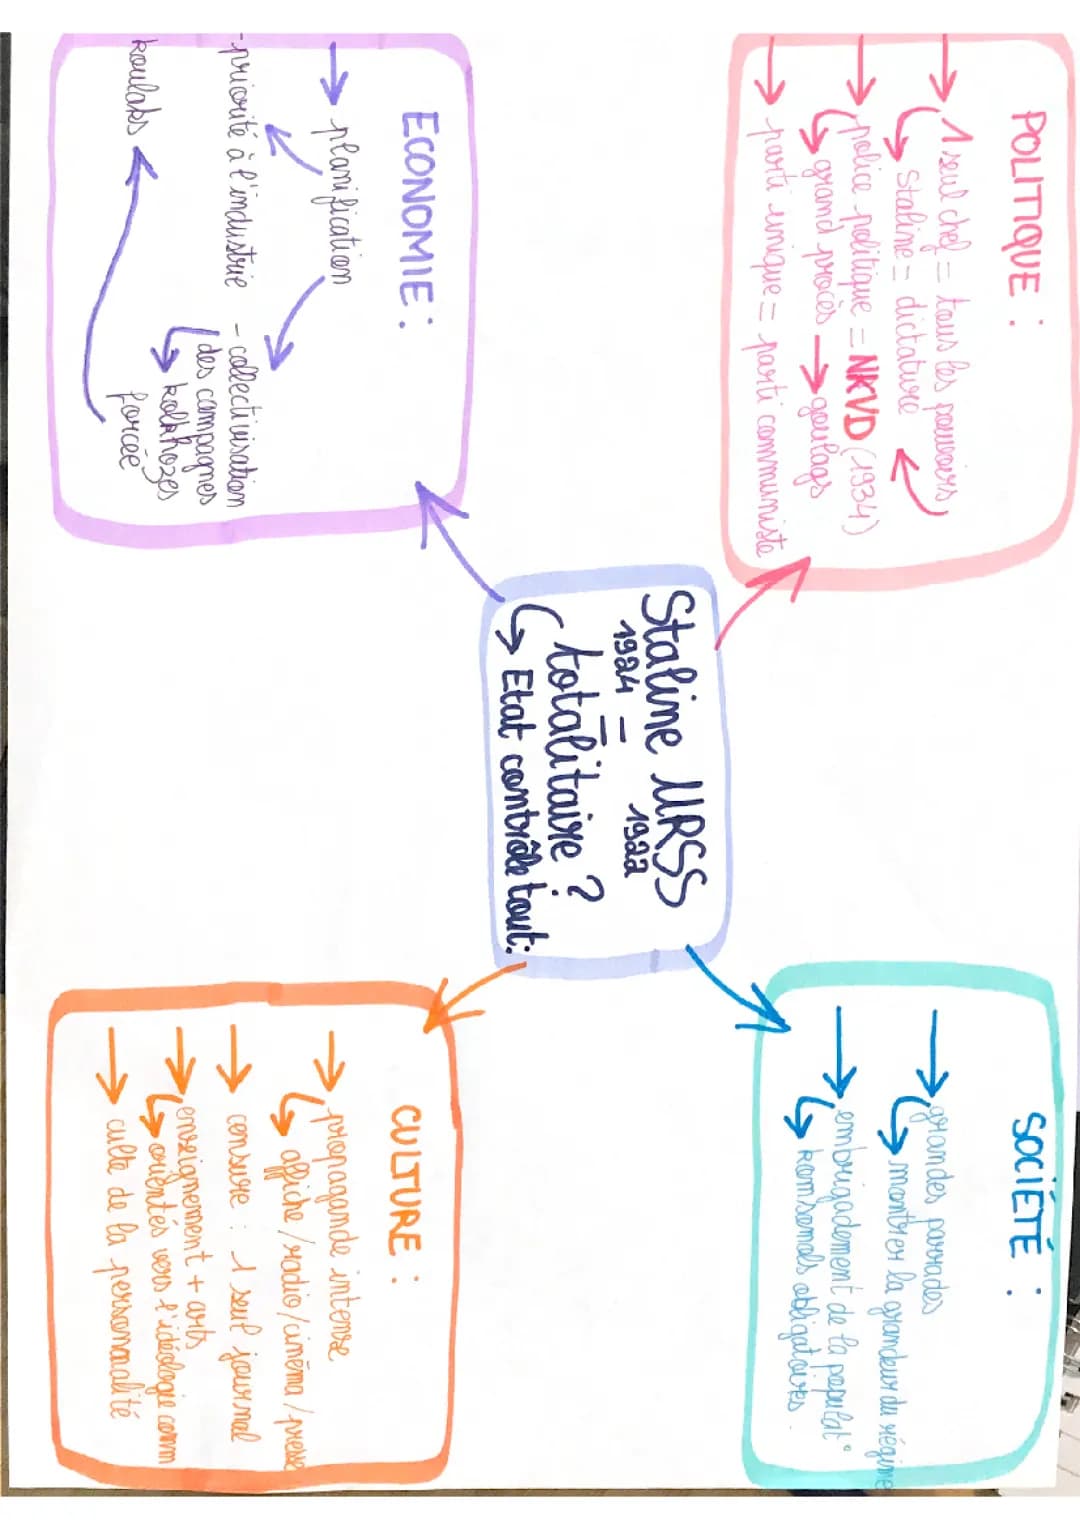 POLITIQUE :
1 seul chef = tous les pouvoirs
Staline = dictature
police politique = NKVD (1934)
grand procès → goulags
parti unique = parti communiste
SOCIÉTÉ :
grandes parades
montrer la grandeur du régime
embrigadement de la populat°
komsomols obligatoires.
Staline URSS
1924 = 1922
totalitaire ?
Etat contrôle tout:
ECONOMIE :
planification
- priorité à l'industrie
- collectivisation
des campagnes
kolkhozes
forcée
koulaks
CULTURE :
propagande intense
affiche/radio/cinéma/presse
censure : 1 seul journal
enseignement + arts
orientés vers l'idéologie comm
culte de la personnalité